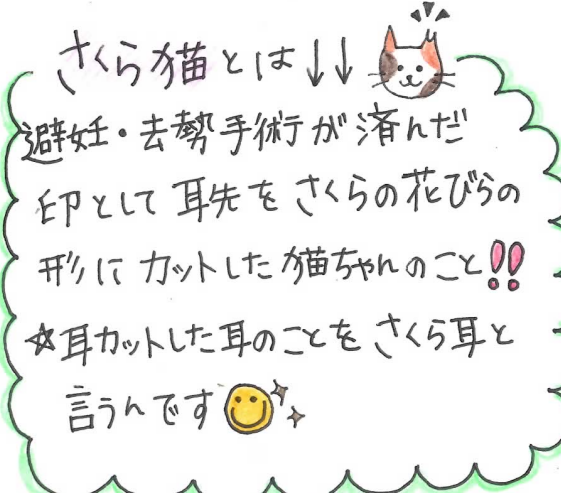 さくら猫とは↓↓
避妊・去勢手術が済んだ
印として耳先をさくらの花びらの
形にカットした猫ちゃんのこと!!
☆耳カットした耳のことをさくら耳と
言うんです